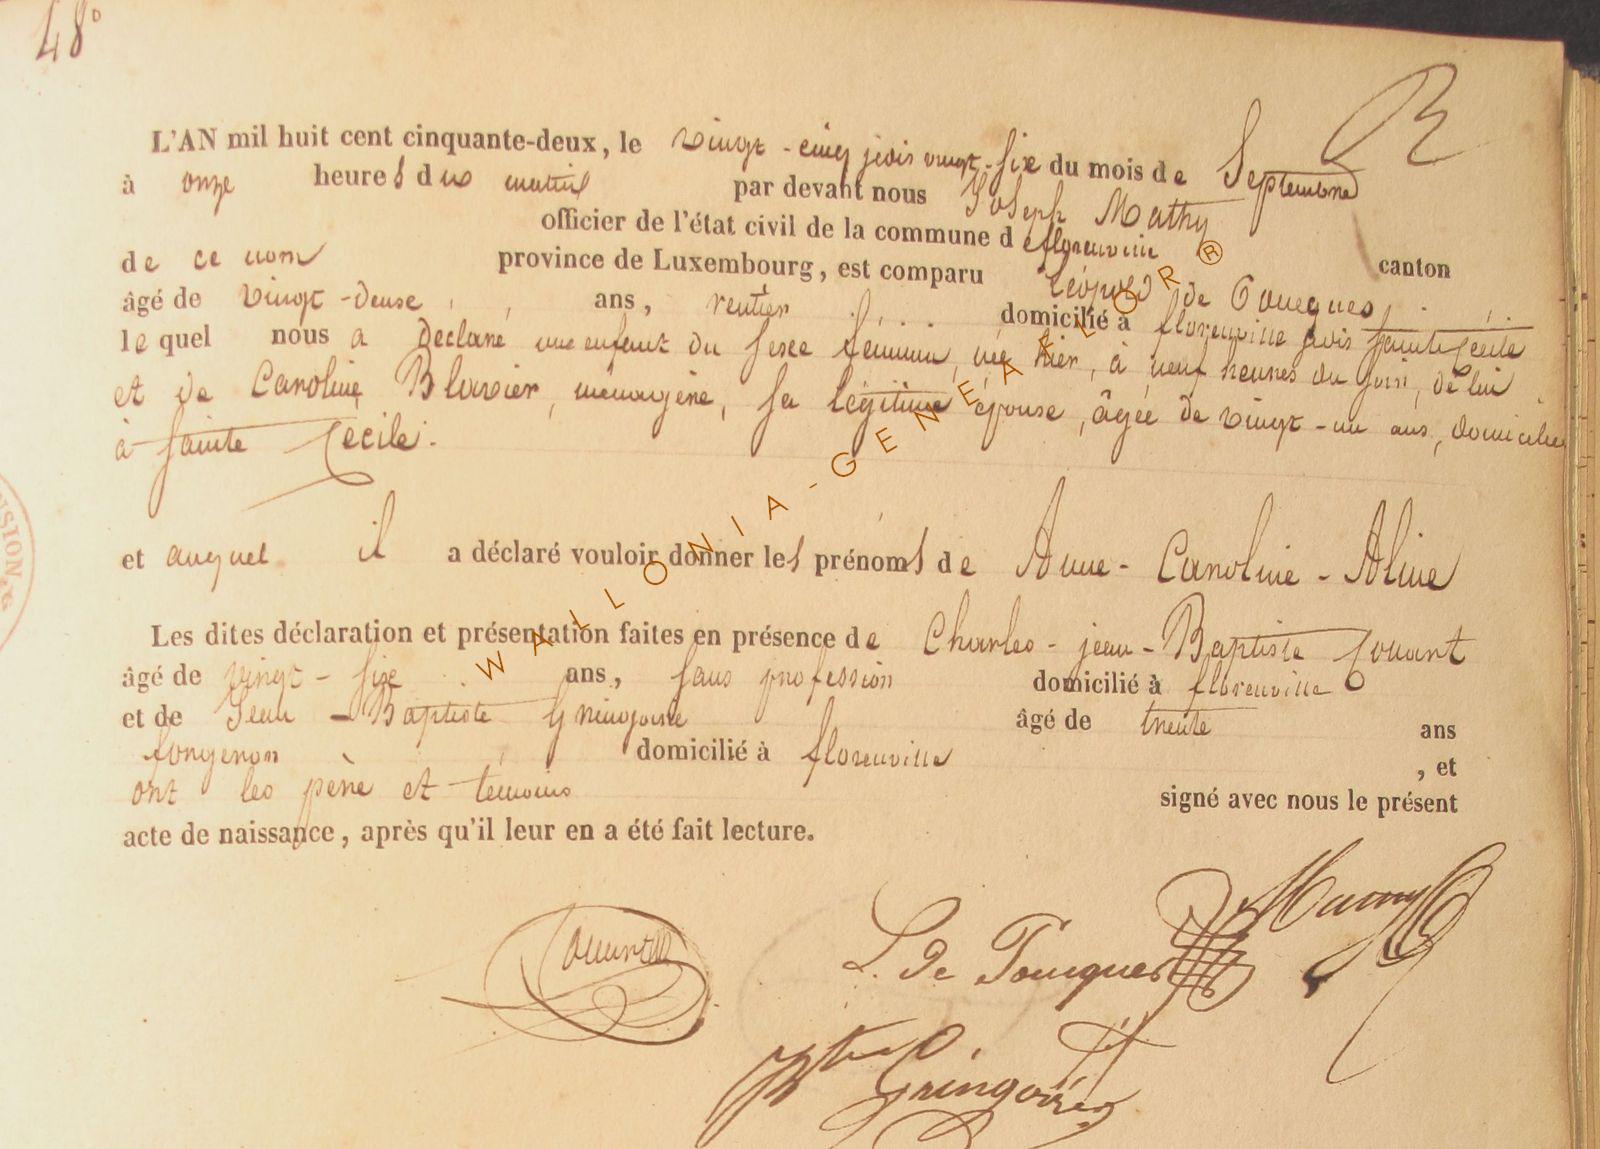 48°
L'AN mil huit cent cinquante-deux, le vingt-cinq jvois vingt-six du mois de Septembre
à onze heures du matin par devant nous Joseph Mathy
officier de l'état civil de la commune de florenville canton
de ce nom province de Luxembourg, est comparu Léopold de
âgé de vingt-deuse ans, rentier domicilié à florenville jvois Sainte Cécile
lequel nous a déclaré une enfant du sexe féminin, née hier, à neuf heures du soir, de lui
et de Caroline Blavier, ménagère, sa légitime épouse, âgée de vingt-un ans, domiciliée
à Sainte Cécile.
et auquel il a déclaré vouloir donner les prénoms de Anne-Caroline-Aline
Les dites déclaration et présentation faites en présence de Charles-jean-Baptiste Couart
âgé de vingt-six ans, sans profession domicilié à florenville
et de Jean-Baptiste Gringoire âgé de trente ans
forgeron domicilié à florenville, et
ont les père et témoins signé avec nous le présent
acte de naissance, après qu'il leur en a été fait lecture.
L. De
Gringoire
WALLONIA-GENEALOR®